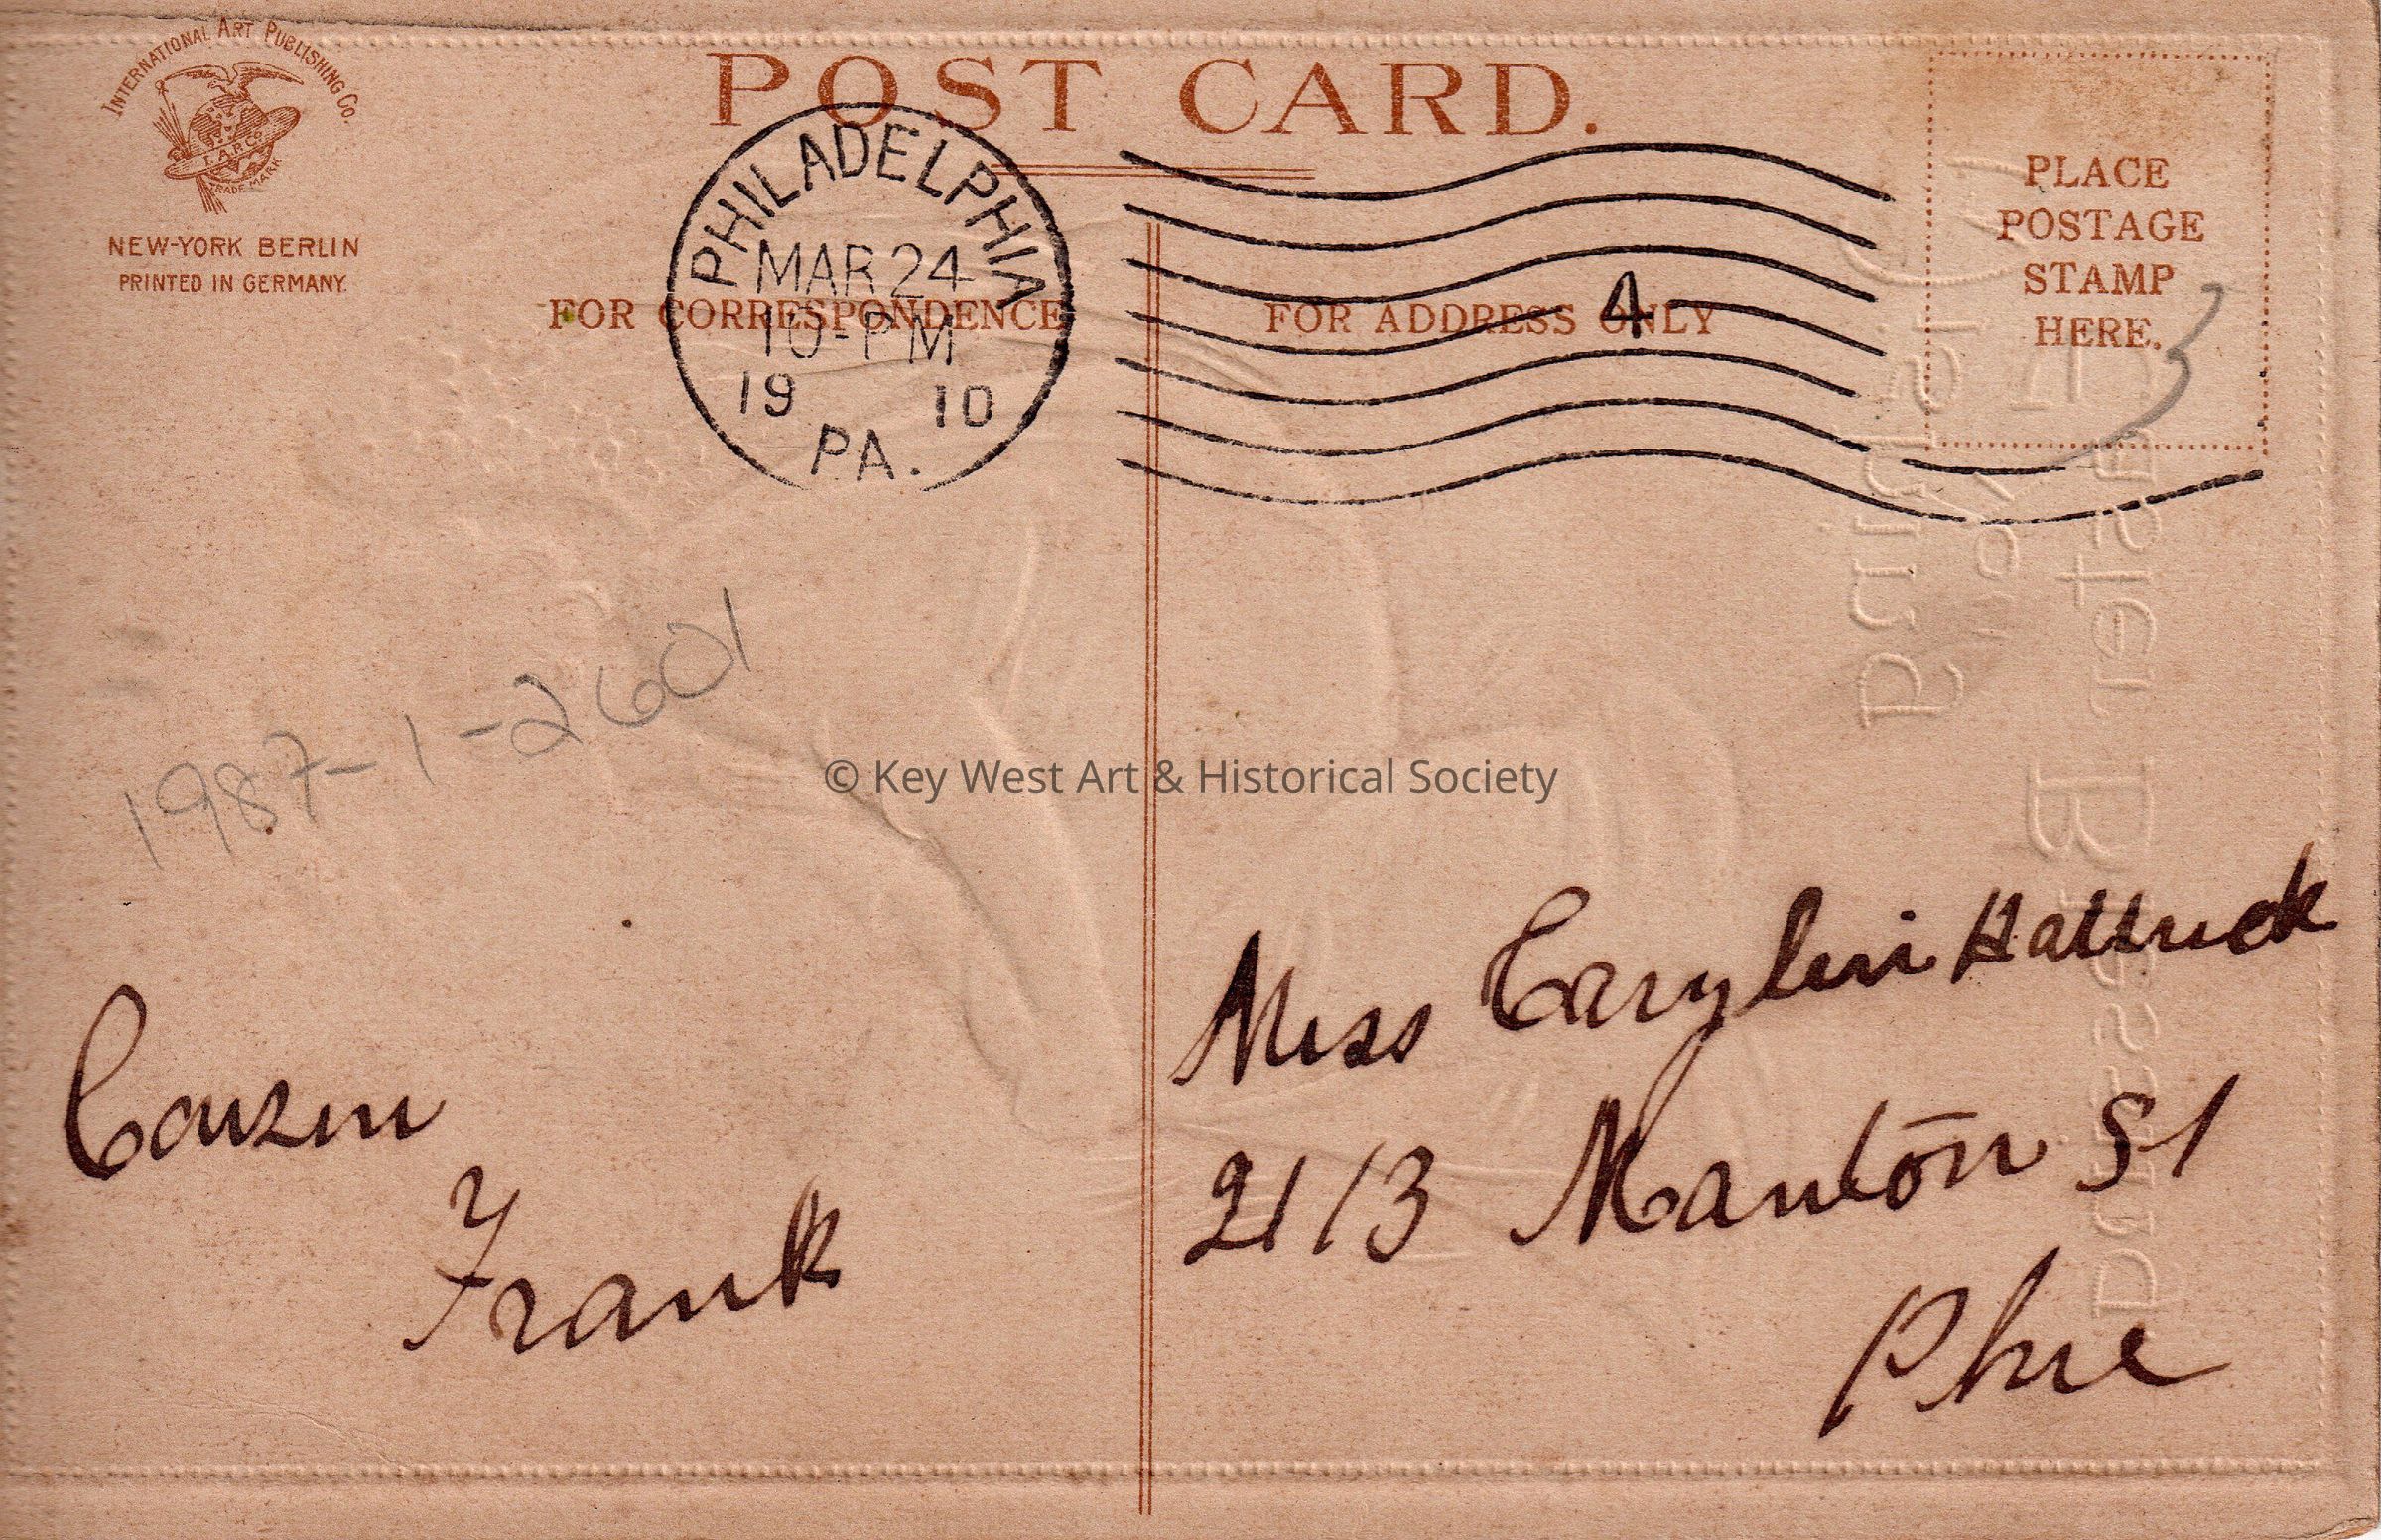 INTERNATIONAL ART PUBLISHING CO.
I.A.P.CO.
TRADE MARK
NEW-YORK BERLIN
PRINTED IN GERMANY.
POST CARD.
PHILADELPHIA
MAR 24
10-PM
19 10
PA.
4
PLACE
POSTAGE
STAMP
HERE.
3
FOR CORRESPONDENCE
FOR ADDRESS ONLY
1987-1-2601
© Key West Art & Historical Society
Couzin
Frank
Miss
2113 Manton St